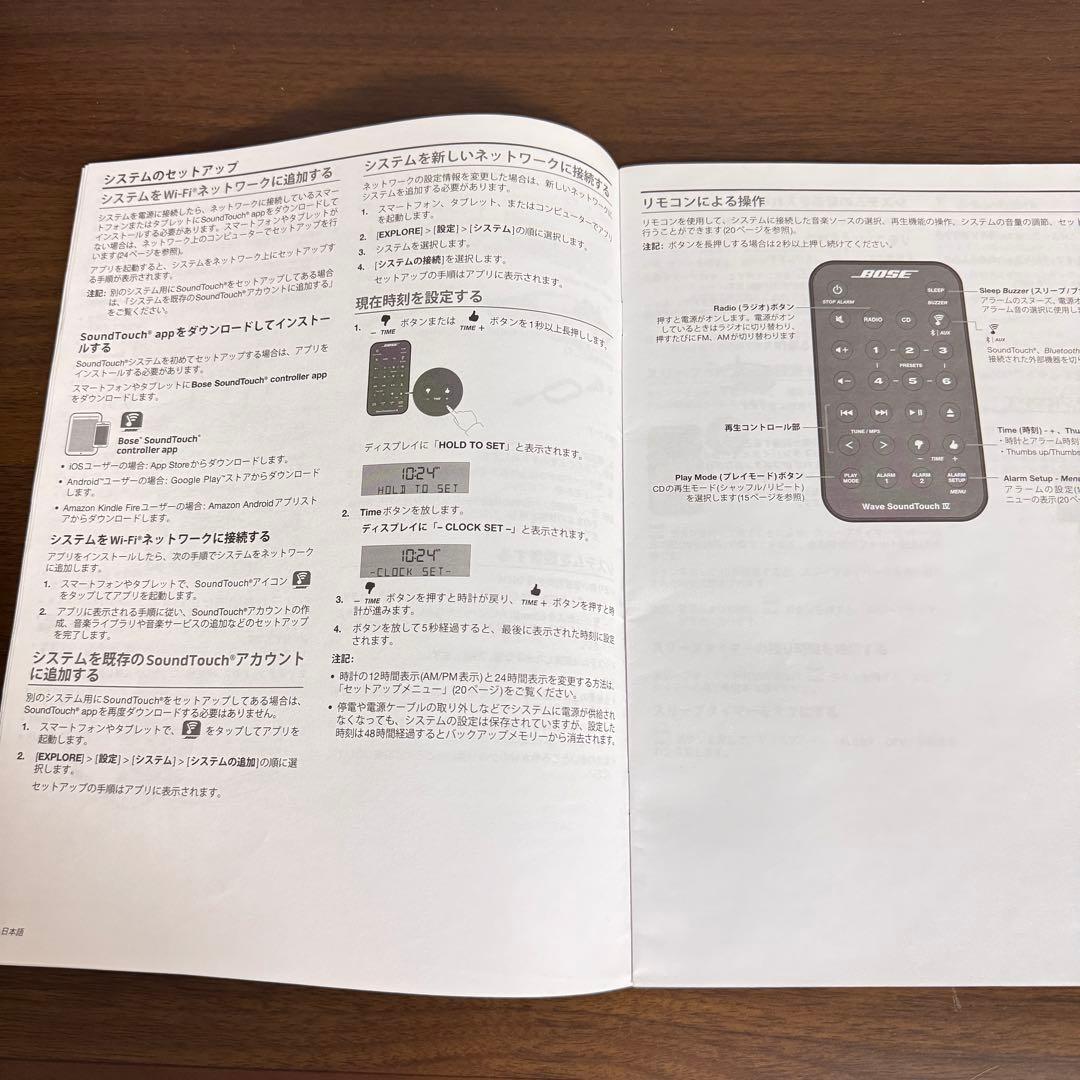 システムのセットアップ
システムをWi-Fi®ネットワークに追加する
システムを電源に接続したら、ネットワークに接続しているスマー
トフォンまたはタブレットにSoundTouch® appをダウンロードして
インストールする必要があります。スマートフォンやタブレットが
ない場合は、ネットワーク上のコンピューターでセットアップを行
います(24ページを参照)。
アプリを起動すると、システムをネットワーク上にセットアップす
る手順が表示されます。
注記: 別のシステム用にSoundTouch®をセットアップしてある場合
は、「システムを既存のSoundTouch®アカウントに追加する」
をご覧ください。
SoundTouch® appをダウンロードしてインストー
ルする
SoundTouch®システムを初めてセットアップする場合は、アプリを
インストールする必要があります。
スマートフォンやタブレットにBose SoundTouch® controller app
をダウンロードします。
Bose® SoundTouch®
controller app
• iOSユーザーの場合: App Storeからダウンロードします。
• Android™ユーザーの場合: Google Play™ストアからダウンロード
します。
• Amazon Kindle Fireユーザーの場合: Amazon Androidアプリスト
アからダウンロードします。
システムをWi-Fi®ネットワークに接続する
アプリをインストールしたら、次の手順でシステムをネットワーク
に追加します。
1. スマートフォンやタブレットで、SoundTouch®アイコン
をタップしてアプリを起動します。
2. アプリに表示される手順に従い、SoundTouch®アカウントの作
成、音楽ライブラリや音楽サービスの追加などのセットアップ
を完了します。
システムを既存のSoundTouch®アカウント
に追加する
別のシステム用にSoundTouch®をセットアップしてある場合は、
SoundTouch® appを再度ダウンロードする必要はありません。
1. スマートフォンやタブレットで、 をタップしてアプリを
起動します。
2. [EXPLORE] > [設定] > [システム] > [システムの追加]の順に選
択します。
セットアップの手順はアプリに表示されます。
日本語
システムを新しいネットワークに接続する
ネットワークの設定情報を変更した場合は、新しいネットワークに
システムを追加する必要があります。
1. スマートフォン、タブレット、またはコンピューターでアプリ
を起動します。
2. [EXPLORE] > [設定] > [システム]の順に選択します。
3. システムを選択します。
4. [システムの接続]を選択します。
セットアップの手順はアプリに表示されます。
現在時刻を設定する
1. – TIME ボタンまたは TIME + ボタンを1秒以上長押しします。
BOSE
– TIME +
ディスプレイに「HOLD TO SET」と表示されます。
10:24
HOLD TO SET
2. Timeボタンを放します。
ディスプレイに「– CLOCK SET –」と表示されます。
10:24
-CLOCK SET-
3. – TIME ボタンを押すと時計が戻り、 TIME + ボタンを押すと時
計が進みます。
4. ボタンを放して5秒経過すると、最後に表示された時刻に設定
されます。
注記:
• 時計の12時間表示(AM/PM表示)と24時間表示を変更する方法は、
「セットアップメニュー」(20ページ)をご覧ください。
• 停電や電源ケーブルの取り外しなどでシステムに電源が供給され
なくなっても、システムの設定は保存されていますが、設定した
時刻は48時間経過するとバックアップメモリーから消去されます。
リモコンによる操作
リモコンを使用して、システムに接続した音楽ソースの選択、再生機能の操作、システムの音量の調節、セット
行うことができます(20ページを参照)。
注記: ボタンを長押しする場合は2秒以上押し続けてください。
Radio (ラジオ)ボタン
押すと電源がオンします。電源がオン
しているときはラジオに切り替わり、
押すたびにFM、AMが切り替わります
再生コントロール部
Play Mode (プレイモード)ボタン
CDの再生モード(シャッフル/リピート)
を選択します(15ページを参照)
BOSE
SLEEP
STOP ALARM BUZZER
RADIO CD
AUX
1 - 2 - 3
PRESETS
4 - 5 - 6
TUNE / MP3
– TIME +
PLAY MODE ALARM 1 ALARM 2 ALARM SETUP
MENU
Wave SoundTouch IV
Sleep Buzzer (スリープ/ブ
アラームのスヌーズ、電源オ
アラーム音の選択に使用し
AUX
SoundTouch®、Bluetooth
接続された外部機器を切り
Time (時刻) - +、Thu
・時計とアラーム時刻
・Thumbs up/Thumbs
Alarm Setup - Menu
アラームの設定(1
ニューの表示(20ペー